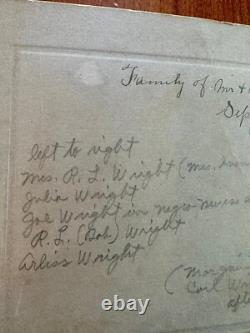 Family of Mr &
Sep
left to right
Mrs. R. L. Wright (Mrs.
Julia Wright
Joe Wright in negro nurses a
R. L. (Bob) Wright
Arliss Wright
(Morgan
Carl Wr
aft